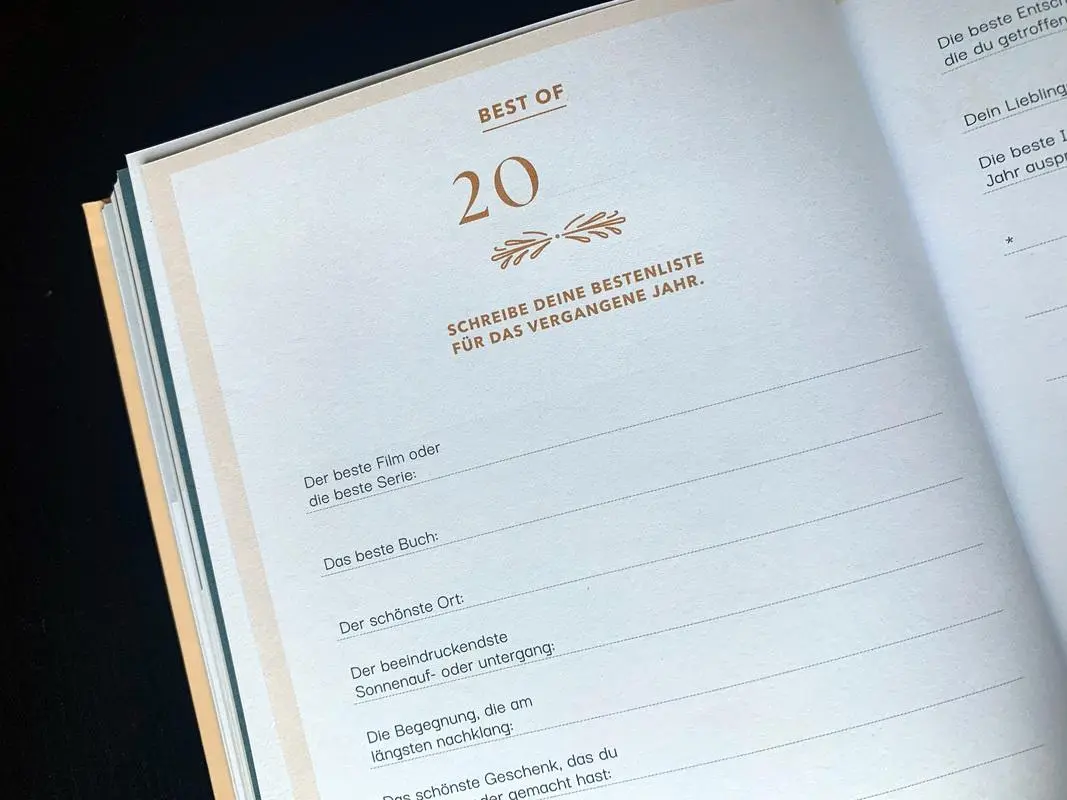 BEST OF
20
SCHREIBE DEINE BESTENLISTE
FÜR DAS VERGANGENE JAHR.
Der beste Film oder
die beste Serie:
Das beste Buch:
Der schönste Ort:
Der beeindruckendste
Sonnenauf- oder untergang:
Die Begegnung, die am
längsten nachklang:
Das schönste Geschenk, das du
gemacht hast:
Die beste
die du getroffen
Dein
Die beste
Jahr
*